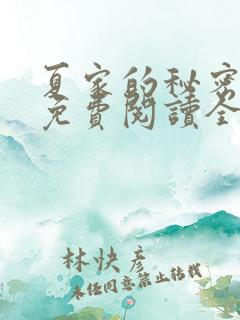 夏家的秘密
免費閱讀全
林快彥
未經同意禁止轉載